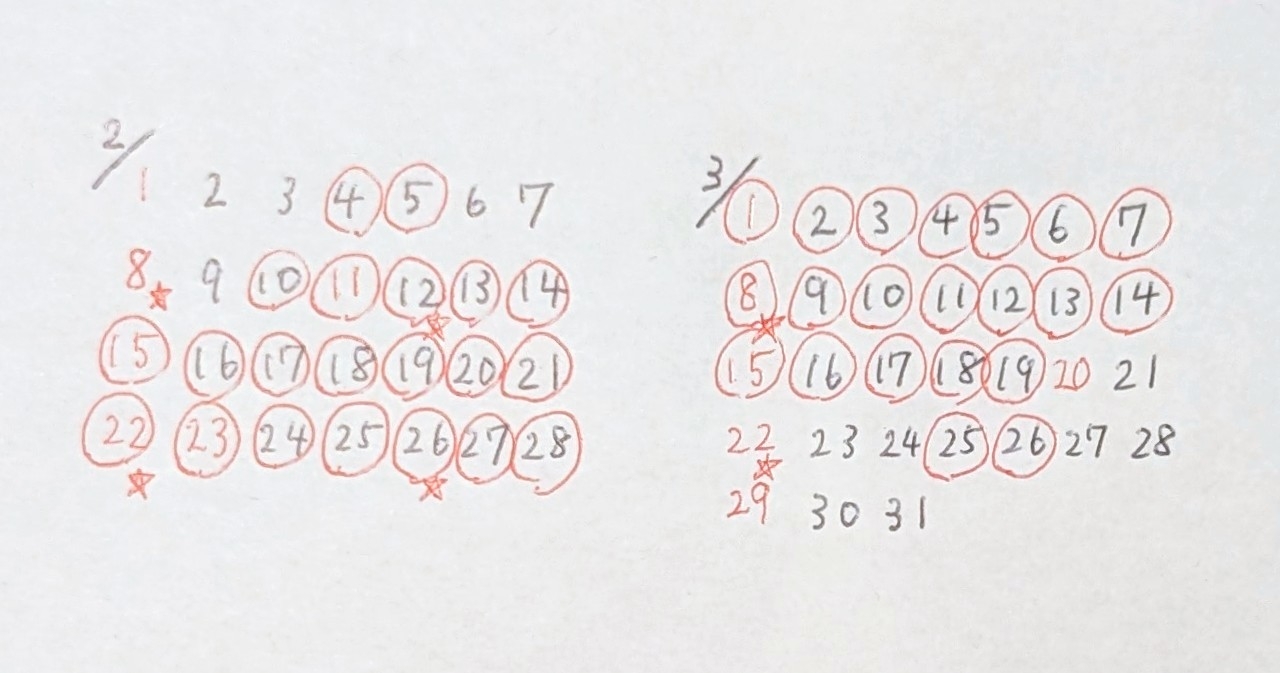 2/
1 2 3 4 5 6 7
8 9 10 11 12 13 14
15 16 17 18 19 20 21
22 23 24 25 26 27 28
3/
1 2 3 4 5 6 7
8 9 10 11 12 13 14
15 16 17 18 19 20 21
22 23 24 25 26 27 28
29 30 31